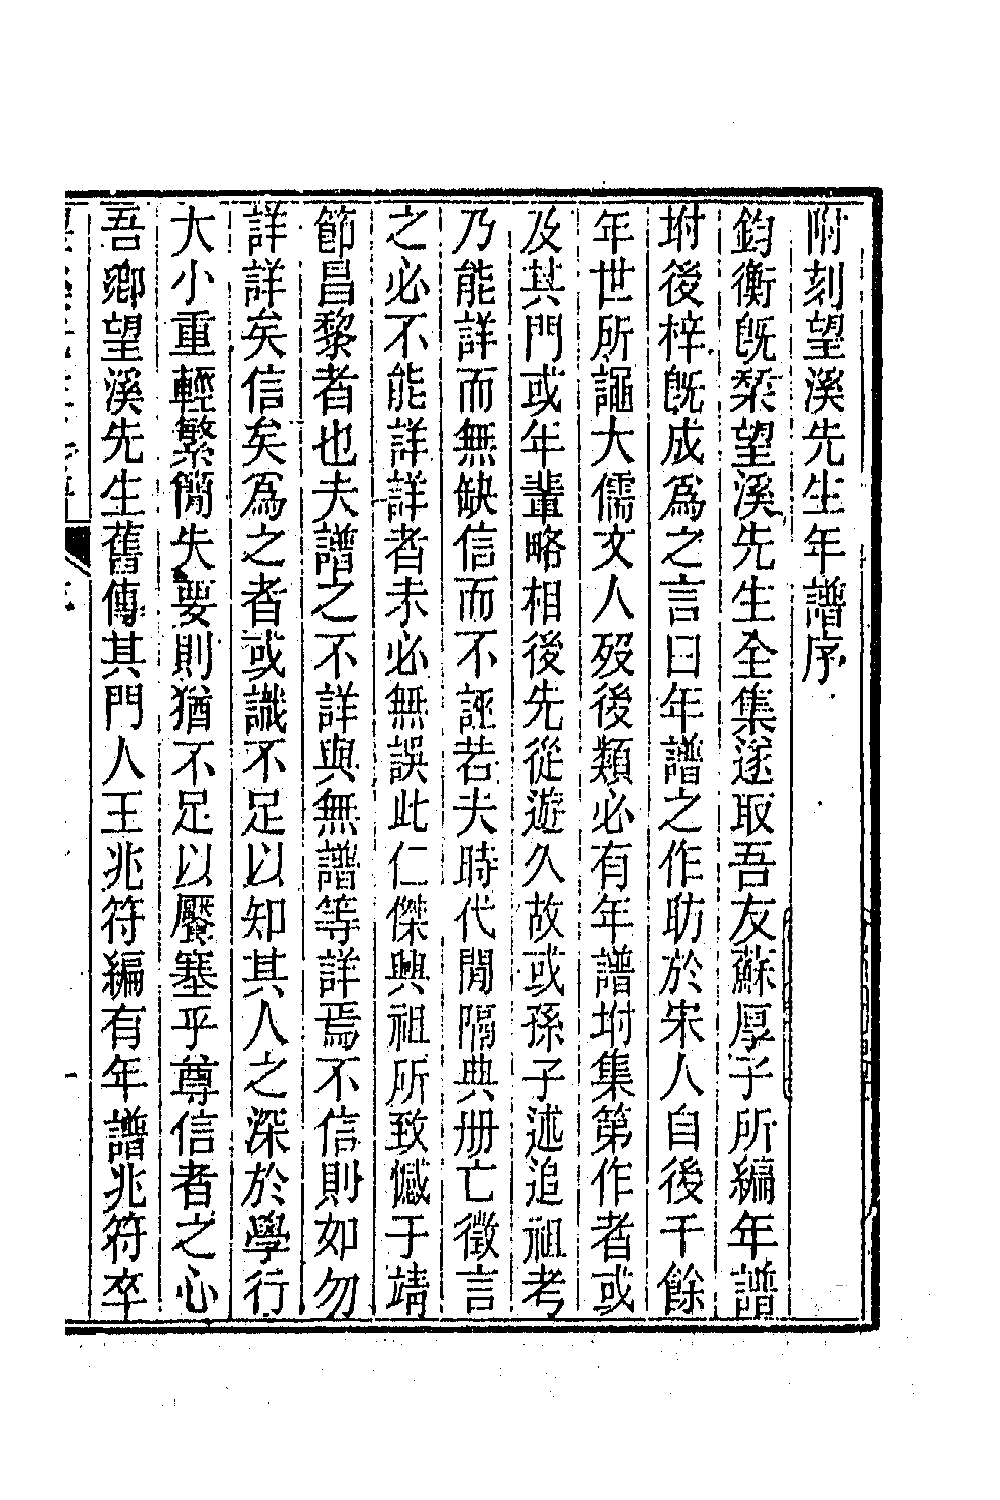 附刻望溪先生年譜序
鈞衡旣棨望溪先生全集遂取吾友蘇厚子所編年譜
坿後梓旣成爲之言曰年譜之作昉於宋人自後千餘
年世所謳大儒文人歿後類必有年譜坿集第作者或
及其門或年輩略相後先從遊久故或孫子述追祖考
乃能詳而無缺信而不誣若夫時代閒隔典册亡徵言
之必不能詳詳者未必無誤此仁傑興祖所致憾于靖
節昌黎者也夫譜之不詳與無譜等詳焉不信則如勿
詳詳矣信矣爲之者或識不足以知其人之深於學行
大小重輕繁簡失要則猶不足以饜塞乎尊信者之心
吾鄉望溪先生舊傳其門人王兆符編有年譜兆符卒